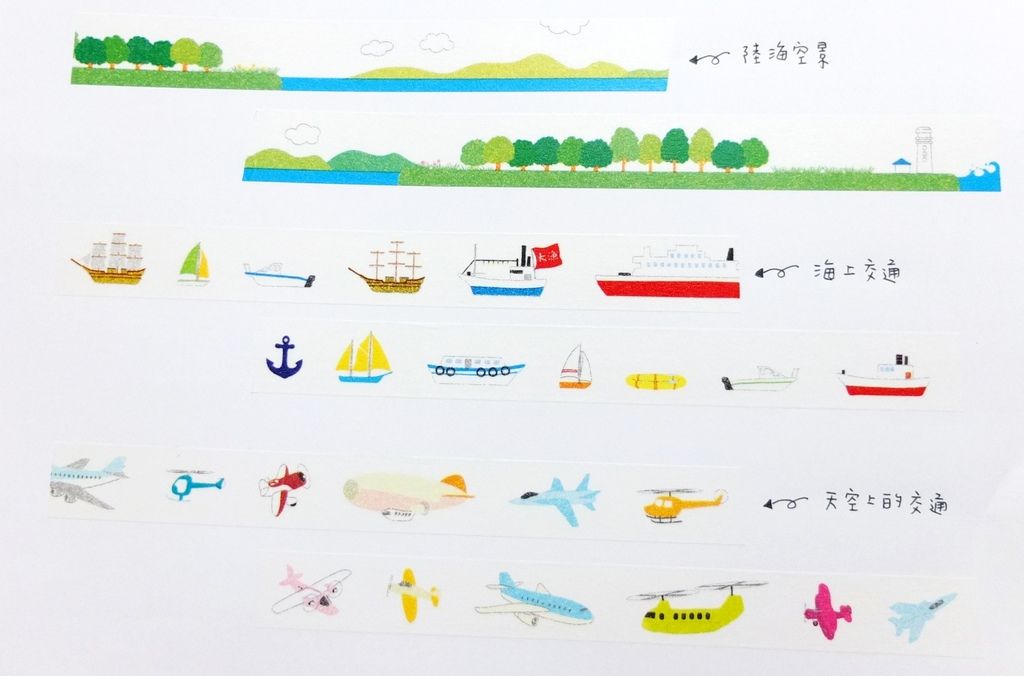 陸海空景
大漁
海上交通
天空上的交通